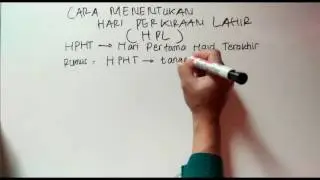 CARA MENENTUKAN
HARI PERKIRAAN LAHIR
(HPL)
HPHT → Hari Pertama Haid Terakhir
Rumus : HPHT → tan